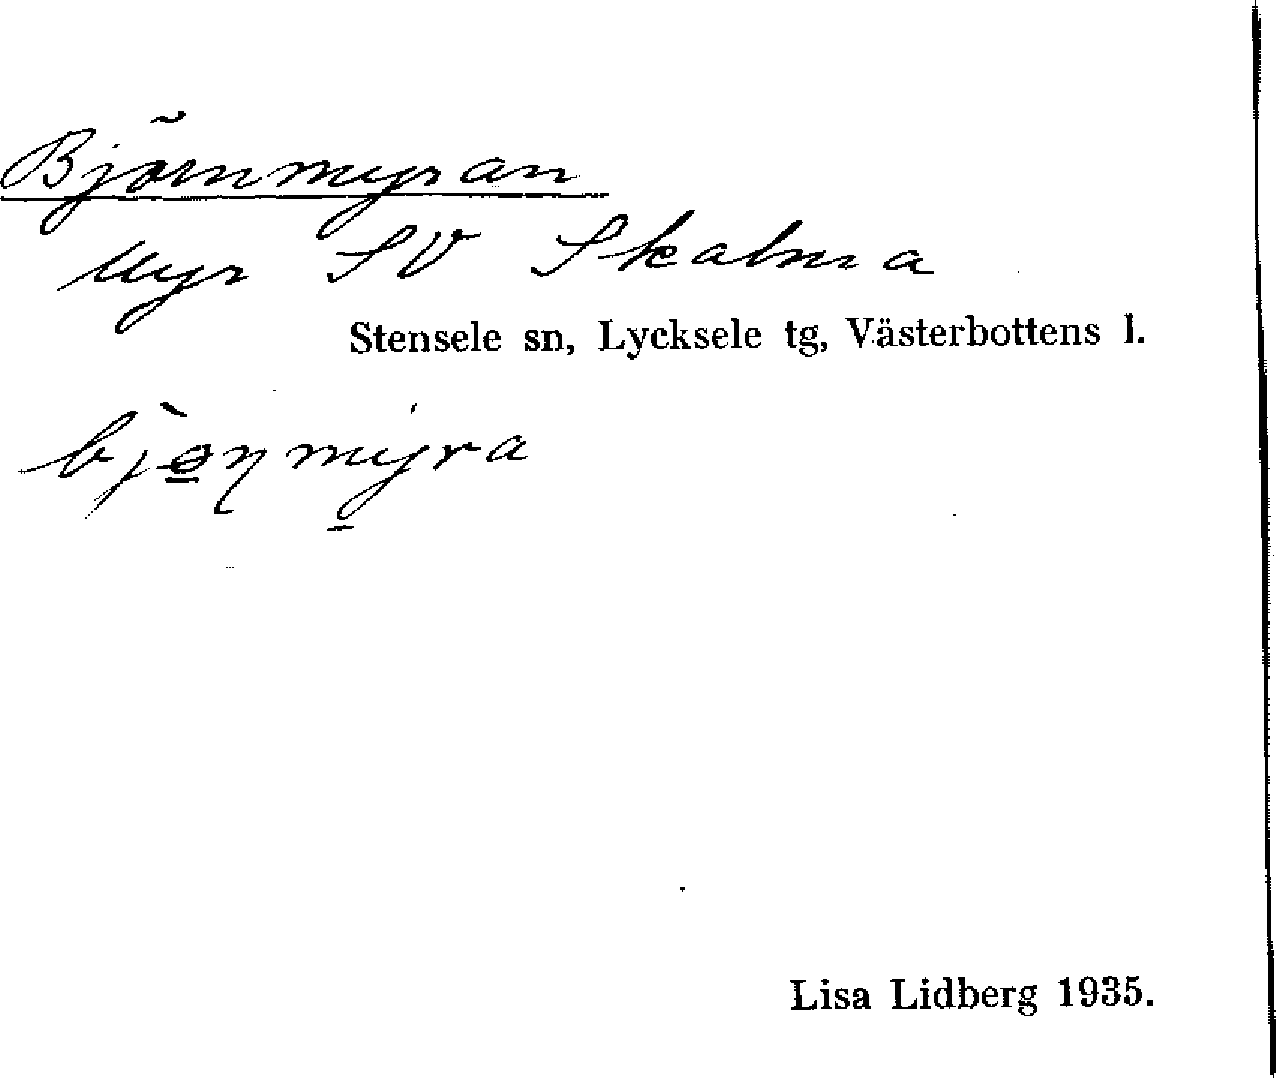 Björnmyran
Myr SV Skalma
Stensele sn, Lycksele tg, Västerbottens l.
Lisa Lidberg 1935.